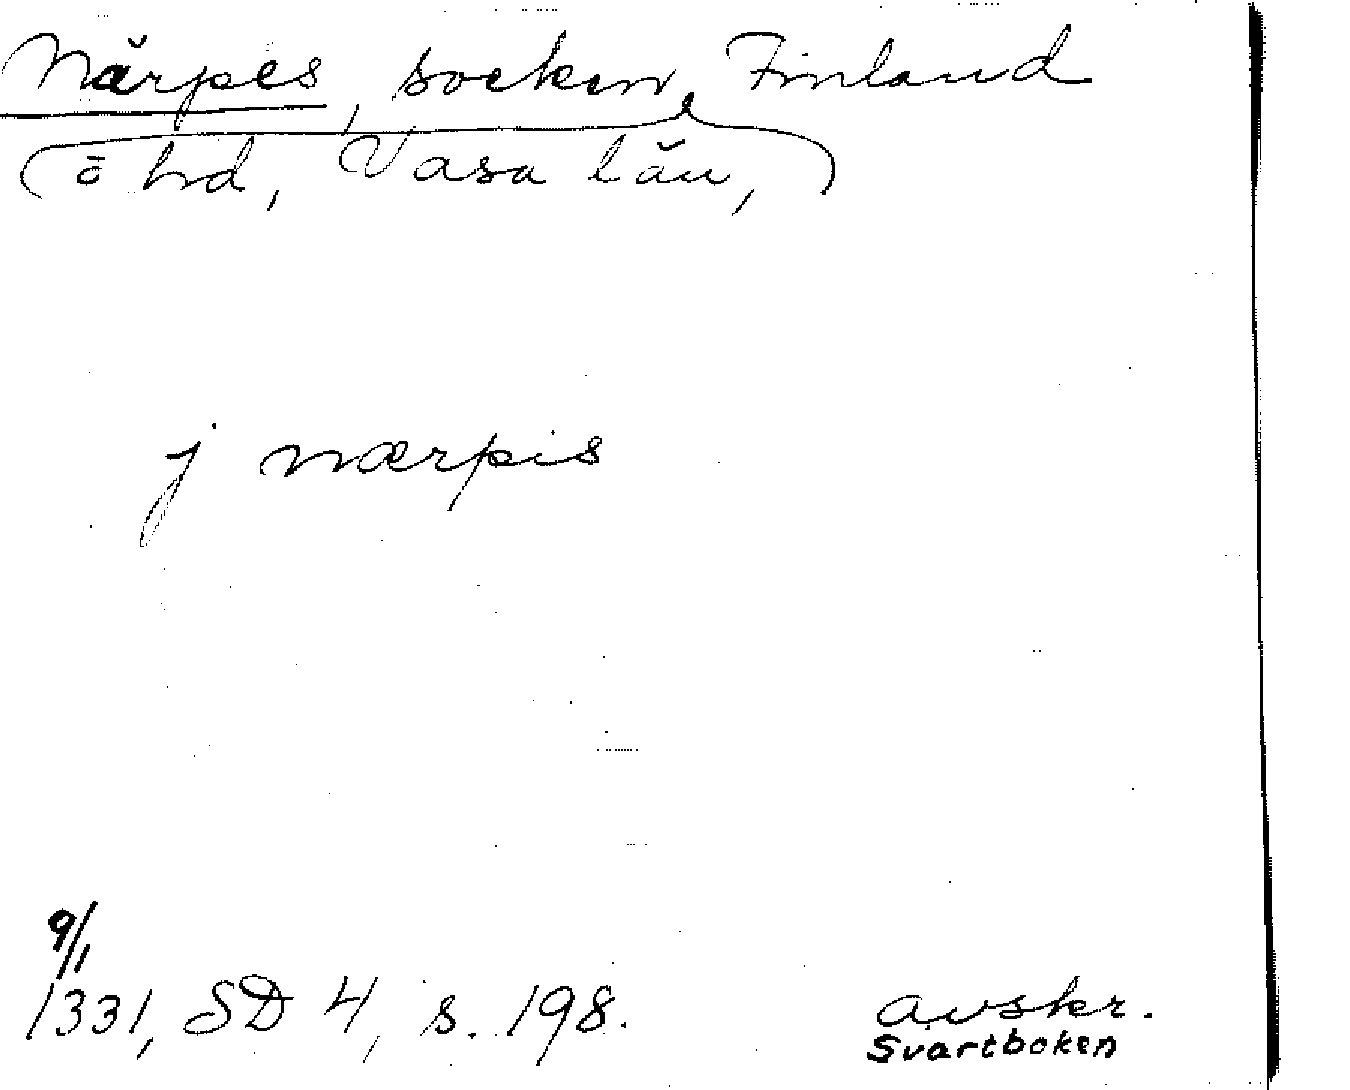 Närpes, socken, Finland
(ö hd, Vasa län,)
j nærpis
9/1
1331, SD 4, s. 198.
avskr.
Svartboken